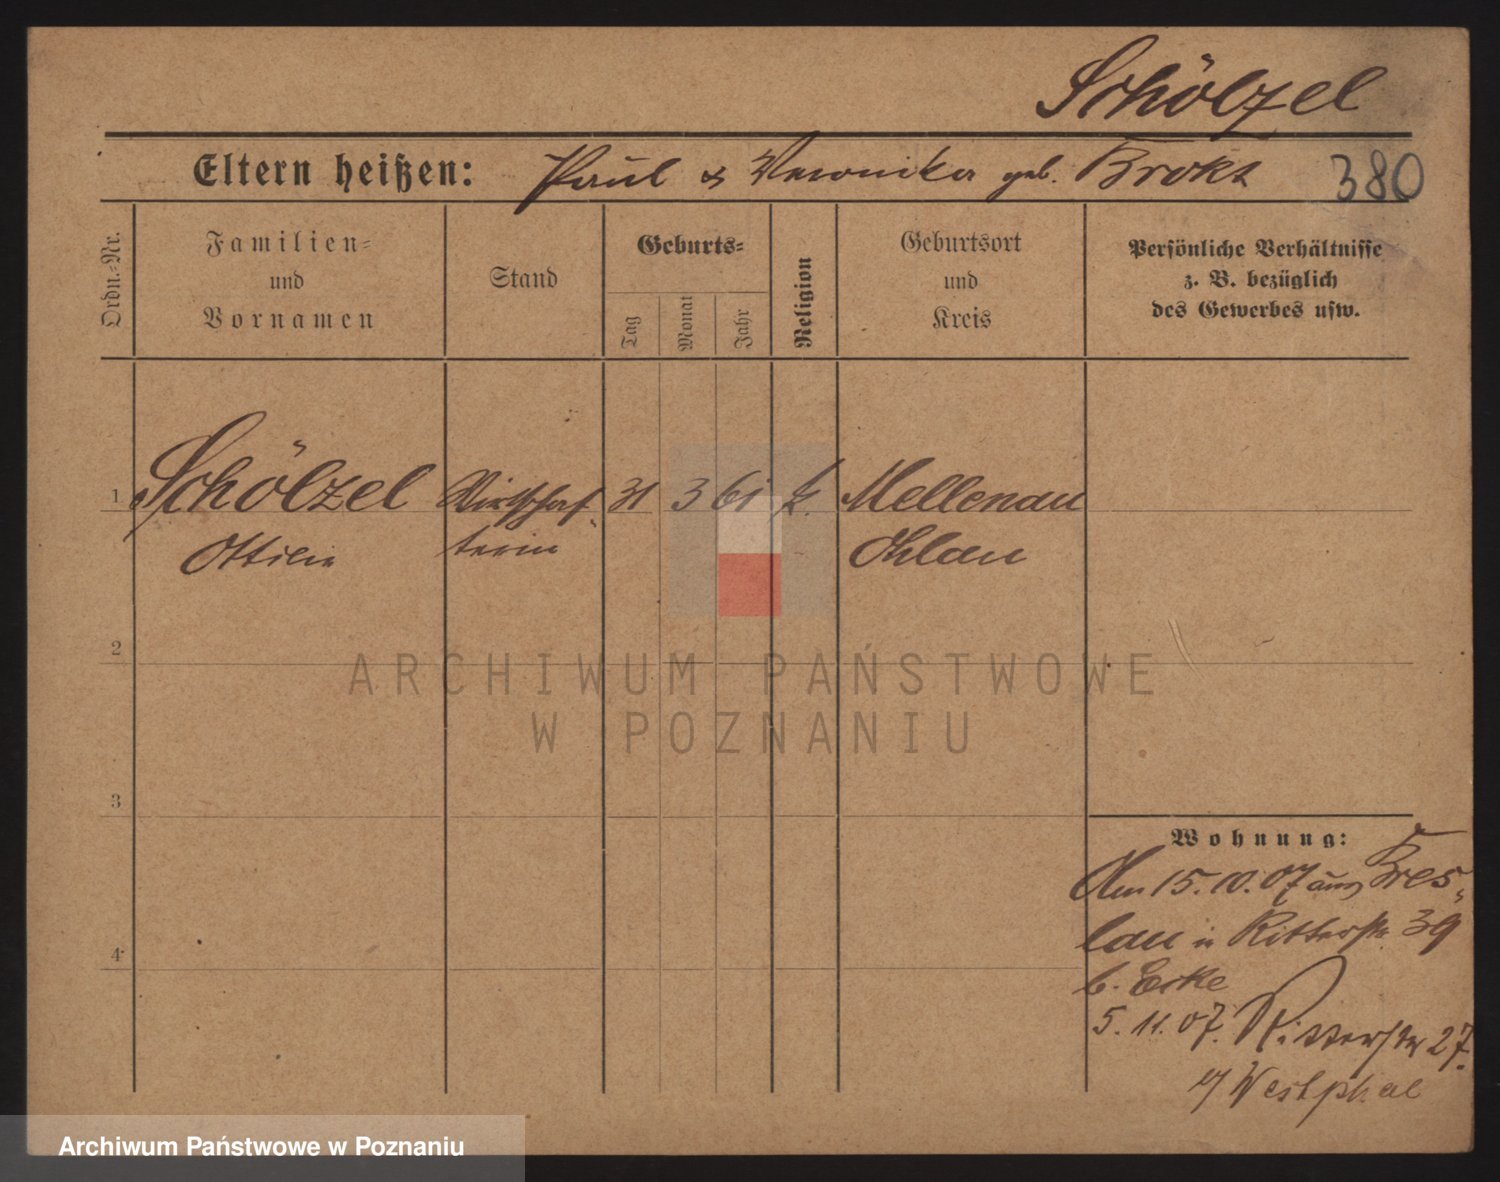 Schölzel
Eltern heißen: Paul & Veronika geb. Brokt 380
Ordn.-Nr.
Familien-
und
Vornamen
Stand
Geburts-
Tag
Monat
Jahr
Religion
Geburtsort
und
Kreis
Persönliche Verhältnisse
z. B. bezüglich
des Gewerbes usw.
1 Schölzel Wirtschaf- 31 3 61 k. Mellenau
Ottilie terin Ohlau
2
3
4
Wohnung:
Am 15.10.07 aus Bres-
lau in Ritterstr. 39
b. Ecke
5.11.07. Ritterstr 27.
b/ Westphal
ARCHIWUM PAŃSTWOWE
W POZNANIU
Archiwum Państwowe w Poznaniu